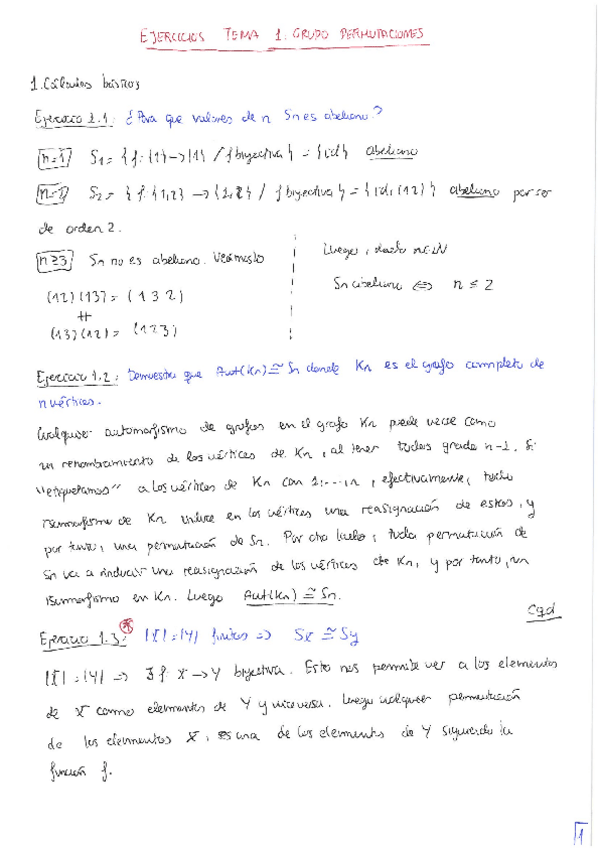 EJERCICIOS TEMA 1. GRUPO PERMUTACIONES
1. Cálculos básicos
Ejercicio 1.1: ¿Para que valores de n Sn es abeliano?
n=1 S₁ = { f: {1} -> {1} / f biyectiva } = {id} abeliano
S₂ = { f: {1,2} -> {1,2} / f biyectiva } = {id, (12)} abeliano por ser
de orden 2.
n≥3 Sn no es abeliano. Veámoslo
(12)(13) = (132)
≠
(13)(12) = (123)
Luego, dado n∈ℕ
Sn abeliano <=> n ≤ 2
Ejercicio 1.2: Demuestra que Aut(Kn) ≅ Sn donde Kn es el grafo completo de
n vértices.
Cualquier automorfismo de grafos en el grafo Kn puede verse como
un renombramiento de los vértices de Kn, al tener todos grado n-1. Si
"etiquetamos" a los vértices de Kn con 1,...,n, efectivamente, todo
isomorfismo de Kn induce en los vértices una reasignación de estos, y
por tanto, una permutación de Sn. Por otro lado, toda permutación de
Sn va a inducir una reasignación de los vértices de Kn, y por tanto, un
isomorfismo en Kn. Luego Aut(Kn) ≅ Sn.
Cqd
Ejercicio 1.3: |X| = |Y| finitos => Sx ≅ Sy
|X| = |Y| => ∃ f: X -> Y biyectiva. Esto nos permite ver a los elementos
de X como elementos de Y y viceversa. Luego cualquier permutación
de los elementos X, es una de los elementos de Y siguiendo la
función f.
1